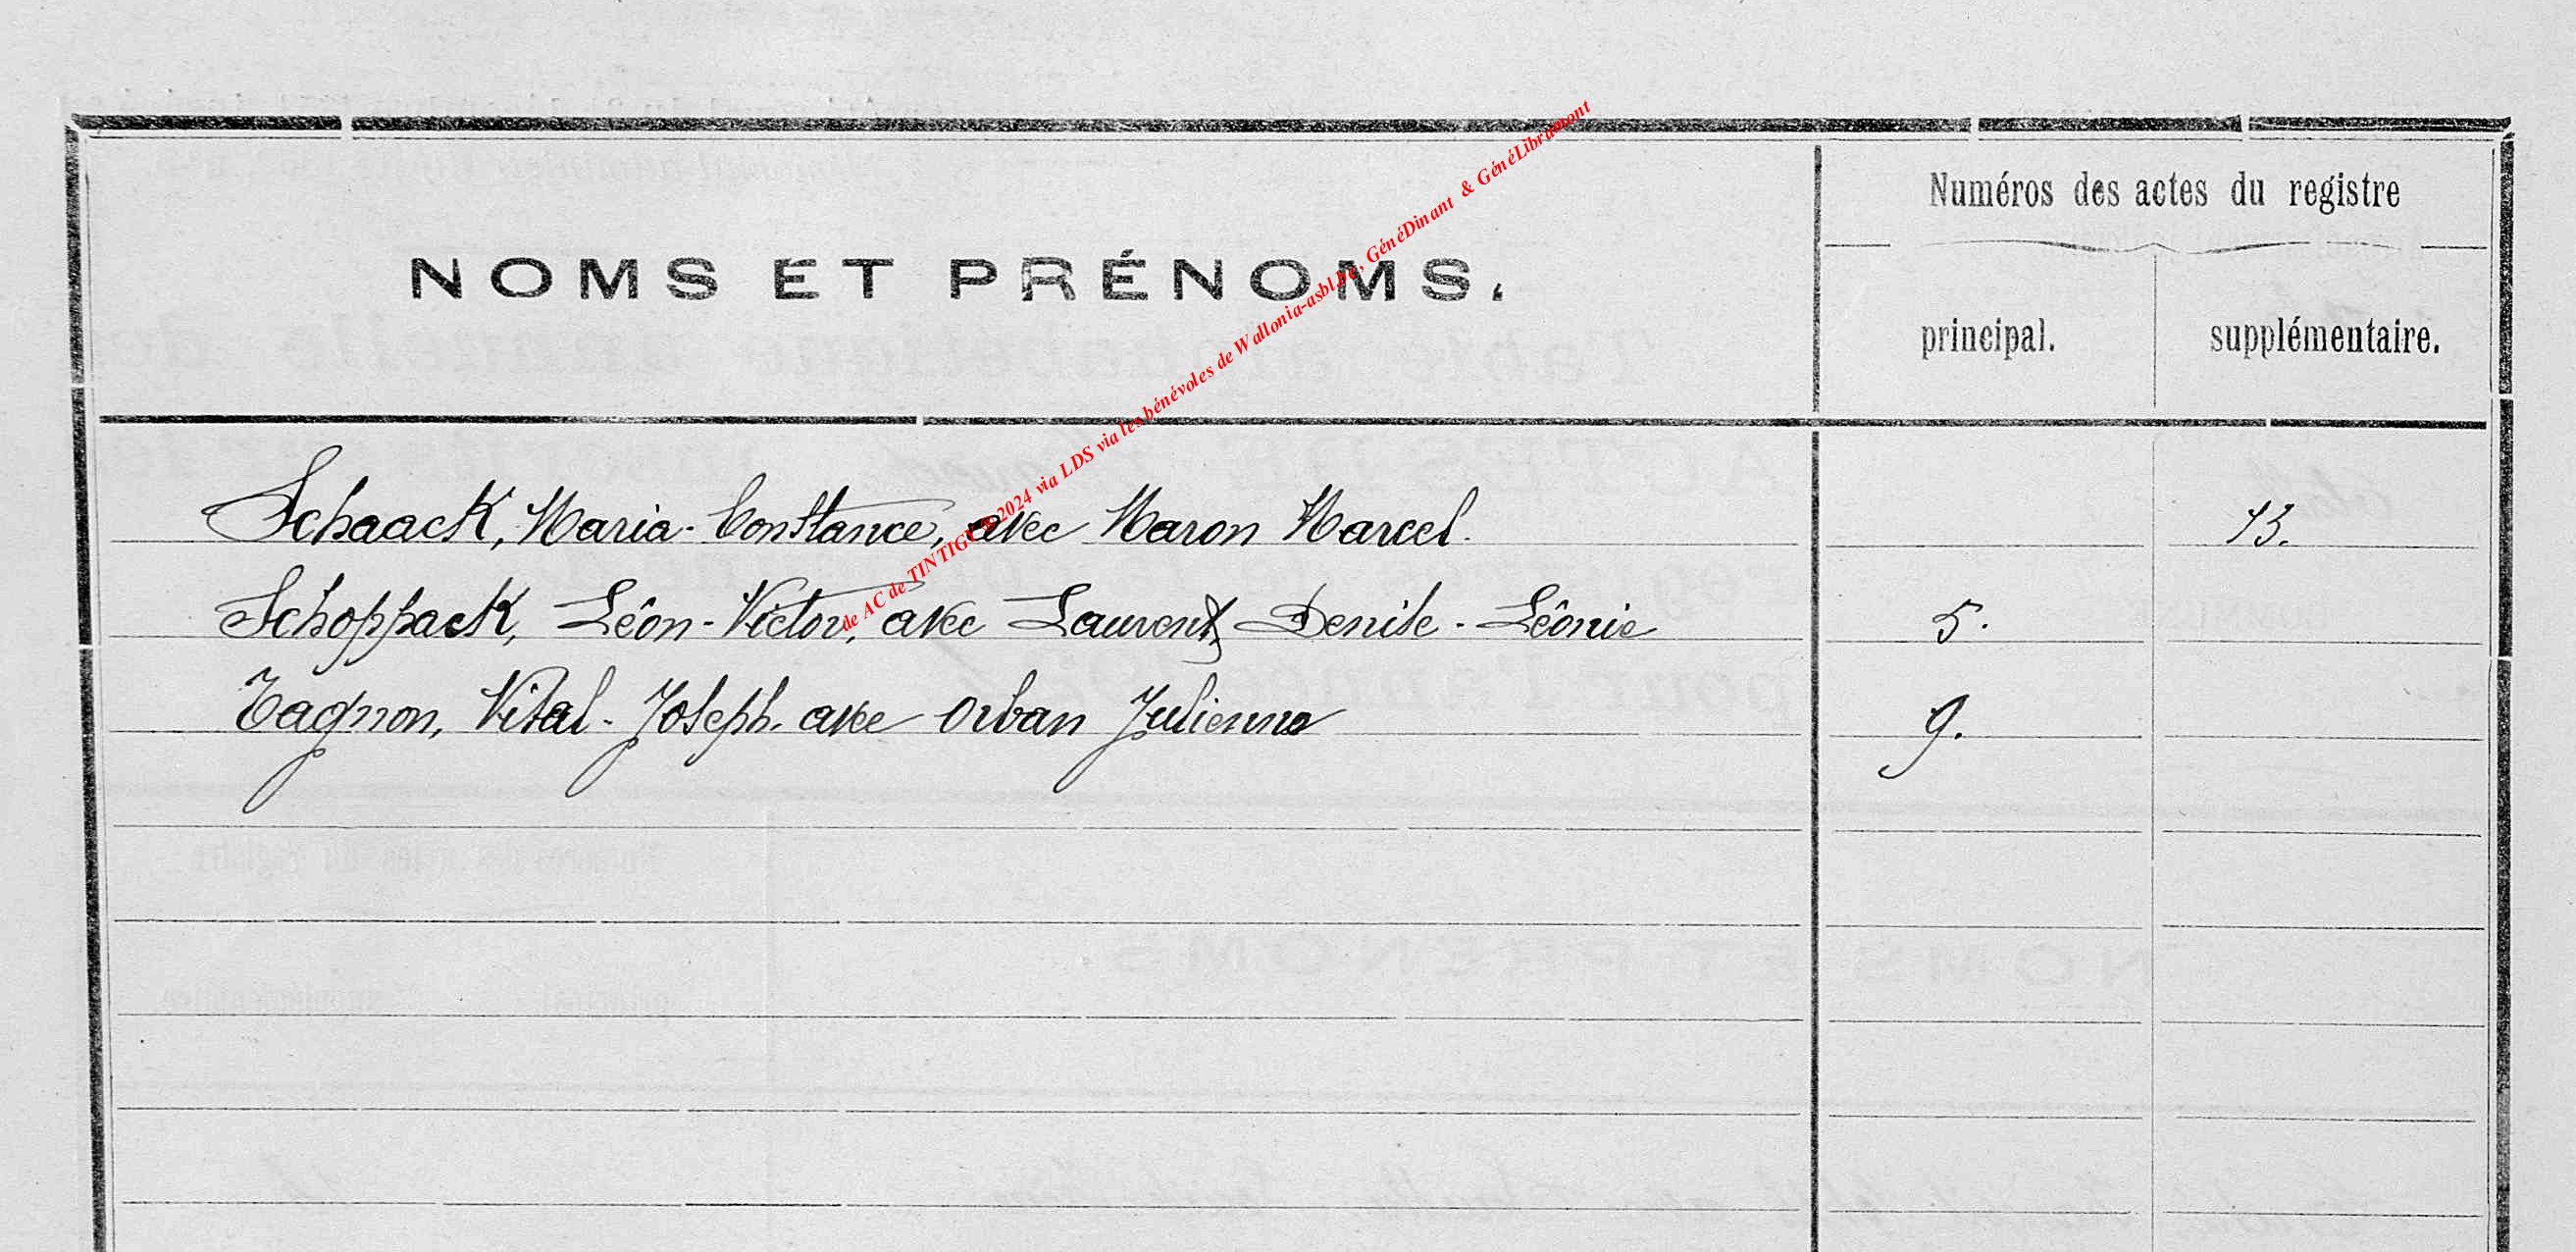 Numéros des actes du registre
NOMS ET PRÉNOMS.
principal. supplémentaire.
de AC de TINTIGNY ©2024 via LDS via les bénévoles de Wallonia-asbl.be, GénéDinant & GénéLibramont
Schaack, Maria-Constance, avec Maron Marcel. 13.
Schoppack, Léon-Victor, avec Laurent Denise-Léonie 5.
Tagnon, Vital-Joseph. avec Orban Julienne 9.